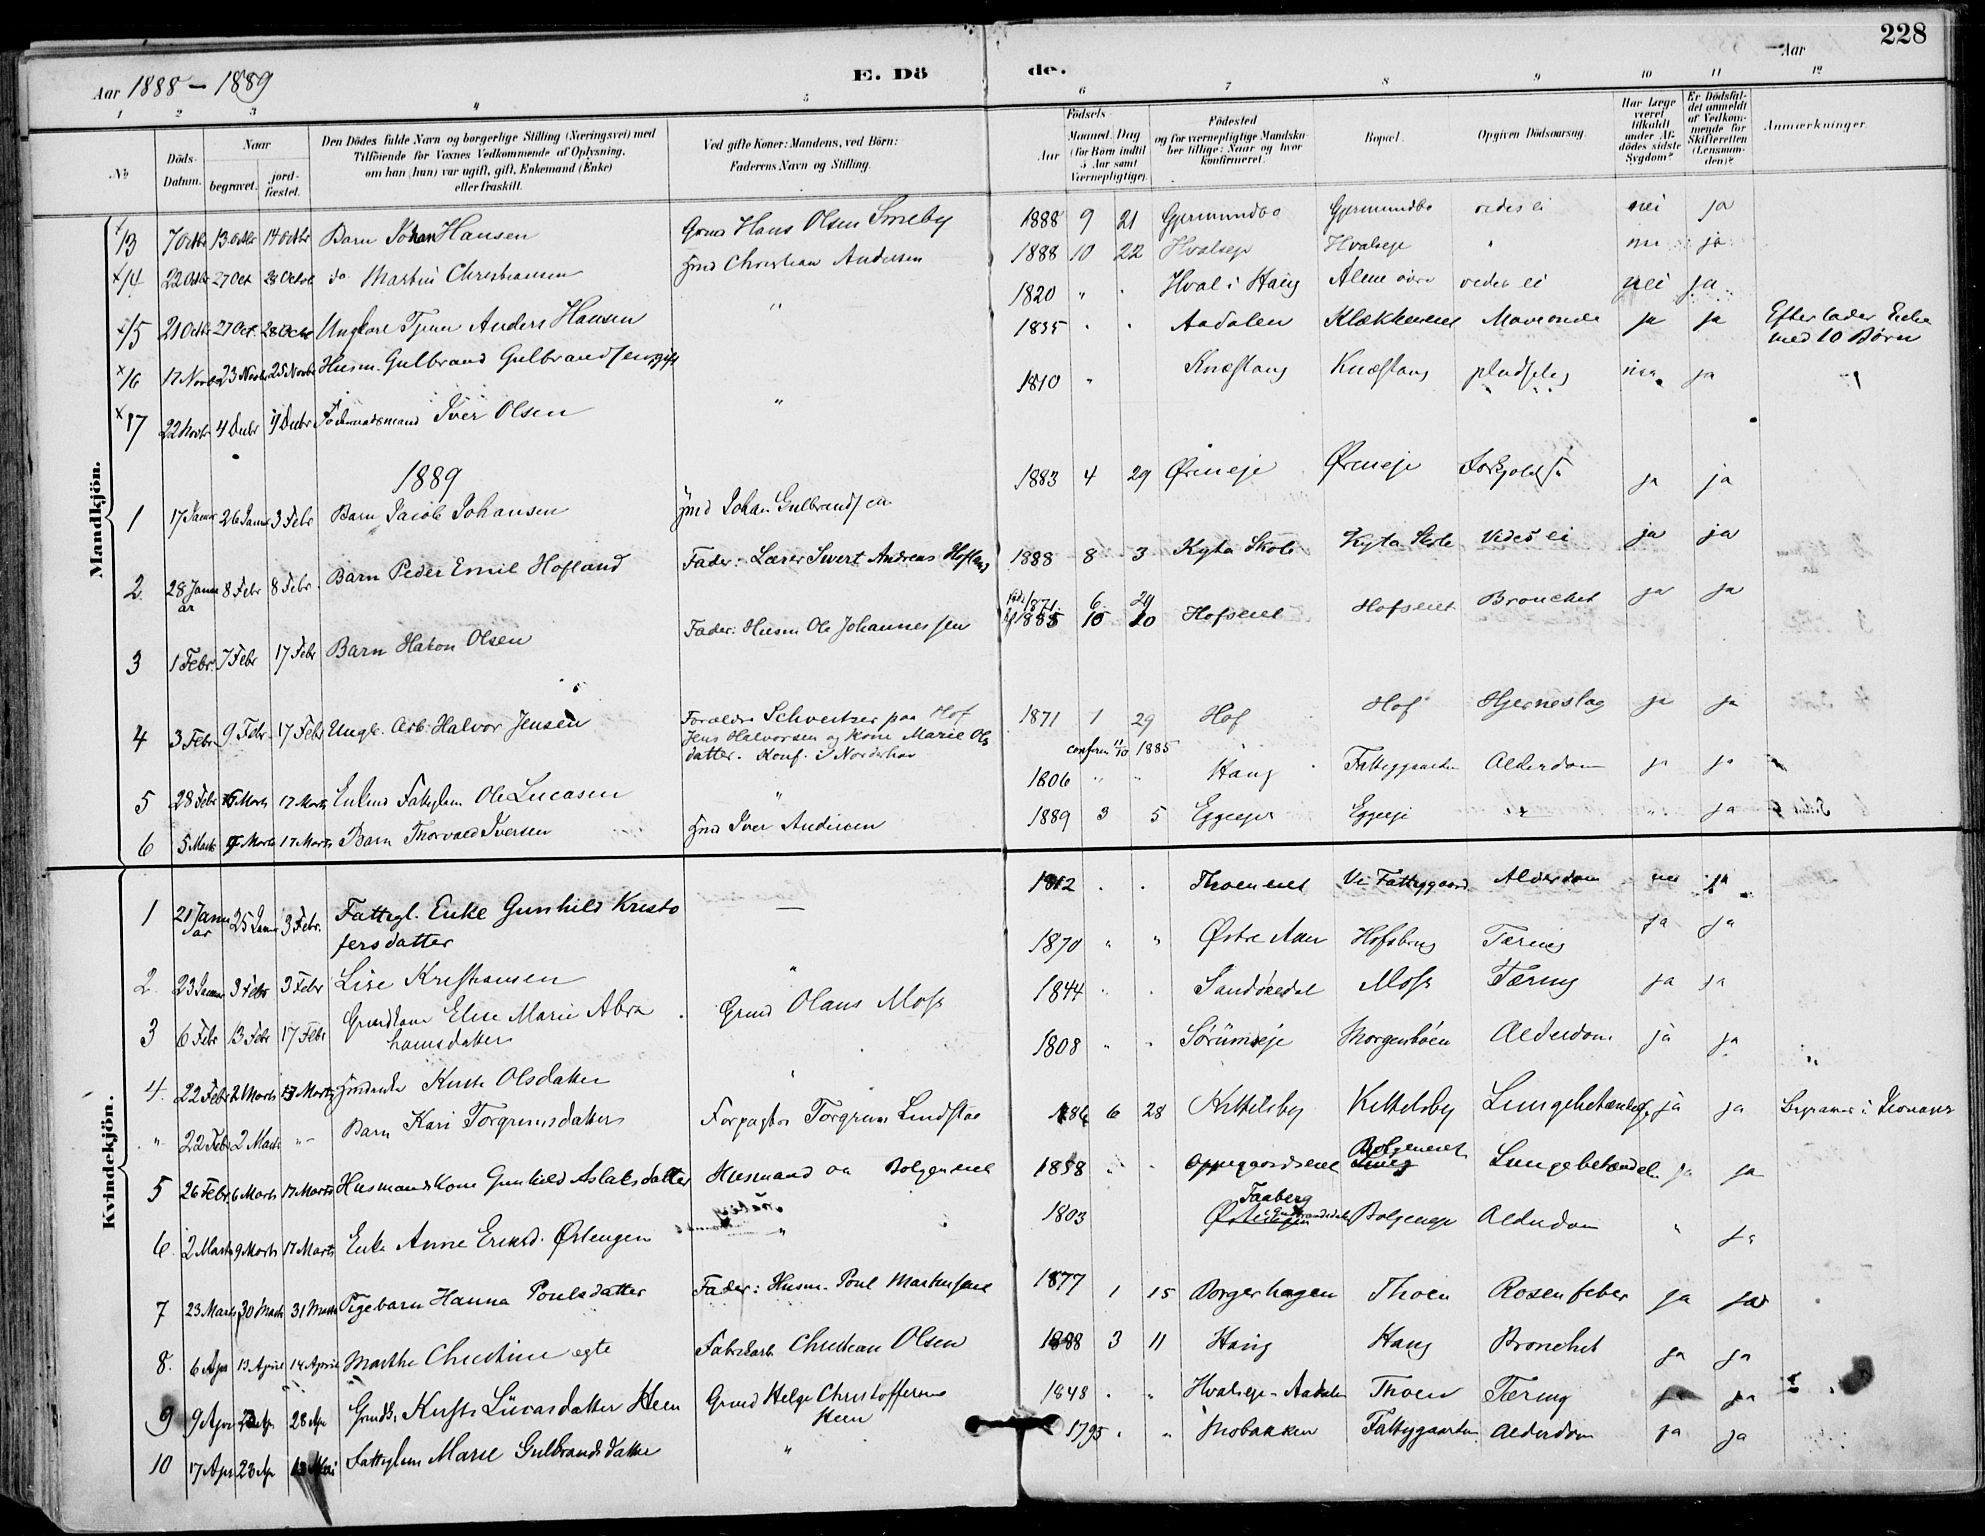 228
Aar 1888 - 1889
E. Döde.
Aar
1 2 3 4 5 6 7 8 9 10 11 12
No
Döds-Datum.
Naar
begravet.
jord-fæstet.
Den Dödes fulde Navn og borgerlige Stilling (Næringsvei) med
Tilföiende for Voxnes Vedkommende af Oplysning,
om han (hun) var ugift, gift, Enkemand (Enke)
eller fraskilt.
Ved gifte Koner: Mandens, ved Börn:
Faderens Navn og Stilling.
Födsels
Aar
Maaned. Dag
(for Börn indtil
5 Aar samt
Værnepligtige).
Födested
og for værnepligtige Mandska-
ber tillige: Naar og hvor
konfirmeret.
Bopæl.
Opgiven Dödsaarsag.
Har Læge
været
tilkaldt
under Af-
dödes sidste
Sygdom?
Er Dödsfal-
det anmeldt
af Vedkom-
mende for
Skifteretten
(Lensman-
den)?
Anmærkninger.
Mandkjön.
13 7 Octbr 13 Octbr 14 Octbr Barn Johan Hansen Grd Hans Olsen Smeby 1888 9 21 Gjermundbo Gjermundbo vides ei nei ja
14 22 Octbr 27 Oct 28 Octob do Martin Christiansen Hmd Christian Andersen 1888 10 22 Hvalseje Hvalseje " nei ja
15 21 Octbr 27 Oct. 28 Octbr Ungkarl Tjener Anders Hansen " 1820 " " Hval i Haug Alme övre vides ei nei ja
16 17 Novbr 23 Novbr 25 Novbr Husm. Gulbrand Gulbrandsen gift 1835 " " Aadalen Klækkeneiet Maveonde ja ja Efterlader Enke
med 10 Børn
17 22 Novbr 4 Decbr 9 Decbr Föderaadsmand Iver Olsen " 1810 " Knæstang Knæstang pludselig nei ja
1889
1 17 Janur 26 Janur 3 Febr Barn Jacob Johansen Hmd Johan Gulbrandsen 1883 4 29 Ørneeje Ørneeje ja ja
2 28 Janu
ar 8 Febr 8 Febr Barn Peder Emil Hofland Fader: Lærer Sivert Andreas Hofland 1888 8 3 Kyta Skole Kyta Skole Vides ei ja ja
3 1 Febr. 7 Febr 17 Febr Barn Hakon Olsen Fader: Husm Ole Johannessen 1871 6. 24
1885 10 20 Hofseiet Hofseiet Bronchet ja ja
4 3 Febr 9 Febr 17 Febr Ungk. Arb. Halvor Jensen Forældre Schveitser paa Hof
Jens Halvorsen og Kone Marie Ols
datter. Konf. i Norderhov 1871 1 29 Hof Hof Hjerneslag ja ja
confirm 11/10 1885
5 28 Febr Marts 17 Marts Enkmd Fattiglem Ole Lucasen " 1806 " " Haug Fattiggaarden Alderdom ja ja
6 5 Marts 9 Marts 17 Marts Barn Thorvald Iversen Hmd Iver Andersen 1889 3 5 Eggeeje Eggeeje " ja
Kvindekjön.
1 21 Janu
ar 25 Januar 3 Febr. Fattigl. Enke Gunhild Kristo
fersdatter — 1812 " " Thoeneiet Vi Fattiggaard Alderdom nei ja
2 23 Januar 3 Febr 3 Febr Lise Kristiansen " 1870 " " Østre Aaen Hofsbrug Tæring ja ja
3 6 Febr 13 Febr 17 Febr Grundkone Elise Marie Abra
hamsdatter Grmd Olaus Mosk 1844 " " Sandökedal Mosk Tæring ja ja
4 22 Febr 2 Marts 17 Marts Kirsti Olsdatter " 1808 " " Sörumseje Morgenböen Alderdom ja ja
" 22 Febr 2 Marts " Barn Kari Torgrimsdatter Forpagter Torgrim Lindstad 6 28 Kittelsby Kittelsby Lungebetændelse ja ja
5 26 Febr. 6 Marts 17 Marts Husmandskone Gunhild Aslaksdatter Husmand Bolgeneiet 1858 Oppegaardseiet Bolgeneiet Lungebetændel ja ja
6. 2 Marts 9 Marts 17 Marts Enke Anne Eriksd. Østengen " 1803 Faaberg
i Gudbrandsdal Bolgeneje Alderdom " ja
7 23 Marts 30 Marts 31 Marts Pigebarn Hanna Poulsdatter Fader: Husm. Poul Martinsen 1877 1 15 Borgerhagen Thoen Rosenfeber ja ja
8. 6 Apr 13 April 14 April Marthe Christine ægte Fabrikarb. Christian Olsen 1888 3 11 Haug Haug Bronchet ja ja
9 9 April 28 Apr Grmdk. Kirsti Lucasdatter Heen Grmd Helge Christoffersen
Heen 1848 " " Hvalseje - Aadalen Thoen Tæring ja ja
10 17 Apr 23 Apr Mai Fattiglem Marie Gulbrandsdatter " 1795 " " Mobakken Fattiggaarden Alderdom ja ja